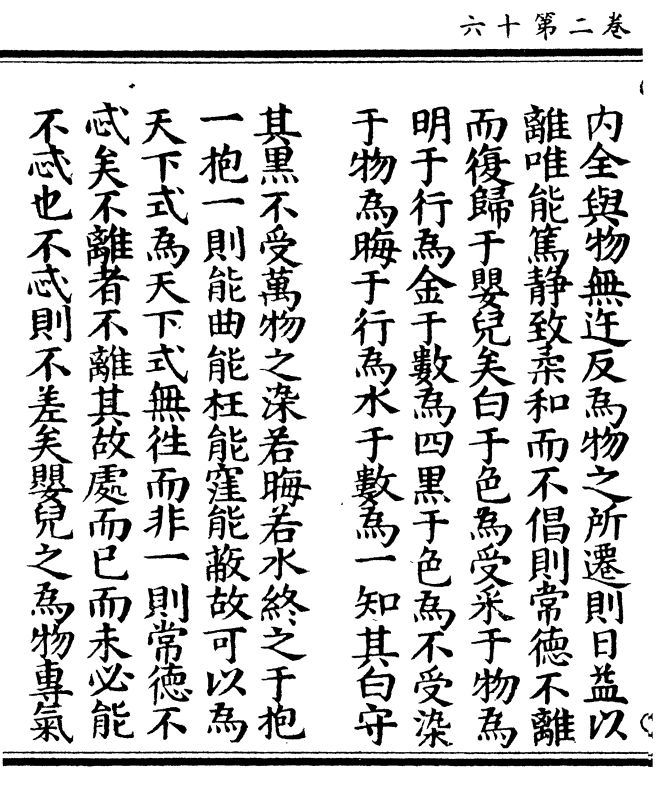 六十第二卷
内全與物無迕反為物之所遷則日益以
離唯能篤静致柔和而不倡則常德不離
而復歸于嬰兒矣白于色為受采于物為
明于行為金于數為四黒于色為不受染
于物為晦于行為水于數為一知其白守
其黒不受萬物之染若晦若水終之于抱
一抱一則能曲能枉能窪能蔽故可以為
天下式為天下式無徃而非一則常德不
忒矣不離者不離其故處而已而未必能
不忒也不忒則不差矣嬰兒之為物專氣